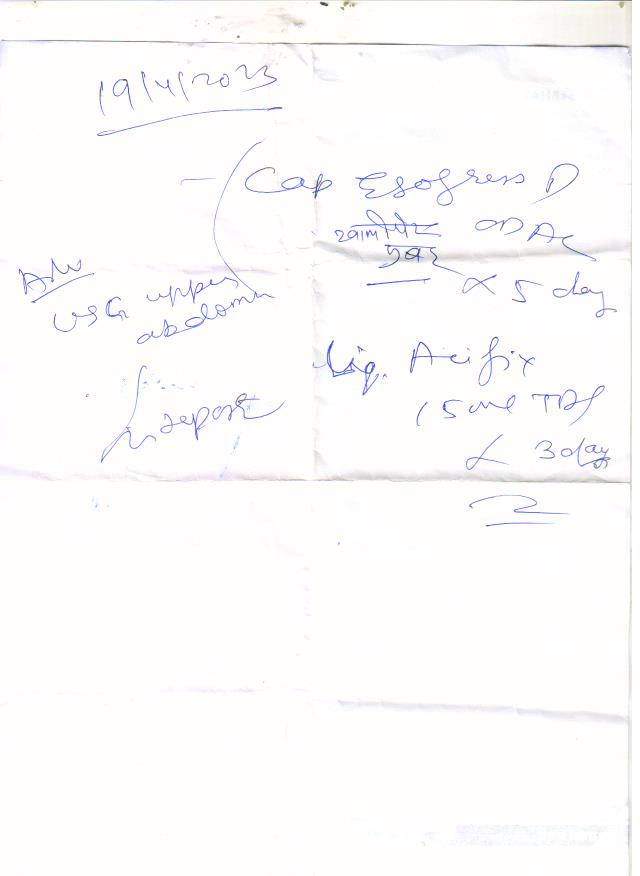 19/4/2023
Cap Esogress D
खालीपेट OD AC
सुबह
x 5 day
Adv
USG upper
abdomen
report
Liq. Acifix
15 ml TDS
x 3 day